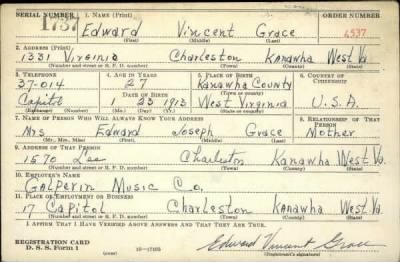 SERIAL NUMBER 1. NAME (Print) ORDER NUMBER
1737 Edward Vincent Grace 4537
(First) (Middle) (Last)
2. ADDRESS (Print)
1331 Virginia Charleston Kanawha West Va.
(Number and street or R. F. D. number) (Town) (County) (State)
3. TELEPHONE 4. AGE IN YEARS 5. PLACE OF BIRTH 6. COUNTRY OF CITIZENSHIP
37-014 27 Kanawha County
DATE OF BIRTH (Town or county)
Capitol 1 23 1913 West Virginia U.S.A.
(Exchange) (Number) (Mo.) (Day) (Yr.) (State or country)
7. NAME OF PERSON WHO WILL ALWAYS KNOW YOUR ADDRESS 8. RELATIONSHIP OF THAT PERSON
Mrs Edward Joseph Grace Mother
(Mr., Mrs., Miss) (First) (Middle) (Last)
9. ADDRESS OF THAT PERSON
1570 Lee Charleston Kanawha West Va.
(Number and street or R. F. D. number) (Town) (County) (State)
10. EMPLOYER'S NAME
Galperin Music Co.
11. PLACE OF EMPLOYMENT OR BUSINESS
17 Capitol Charleston Kanawha West Va.
(Number and street or R. F. D. number) (Town) (County) (State)
I AFFIRM THAT I HAVE VERIFIED ABOVE ANSWERS AND THAT THEY ARE TRUE.
REGISTRATION CARD
D. S. S. Form 1 16-17105 Edward Vincent Grace
(Registrant's signature)